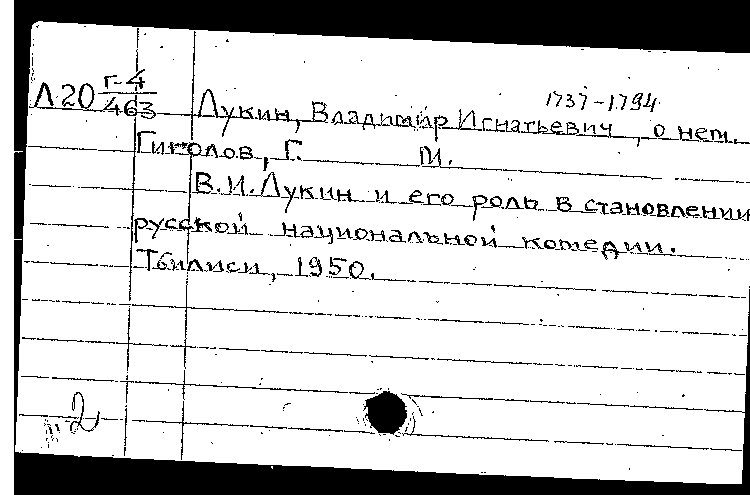 1737-1794
Л20 Г-4/463 Лукин, Владимир Игнатьевич, о нем.
Гиголов, Г. М.
В.И. Лукин и его роль в становлении
русской национальной комедии.
Тбилиси, 1950.
2